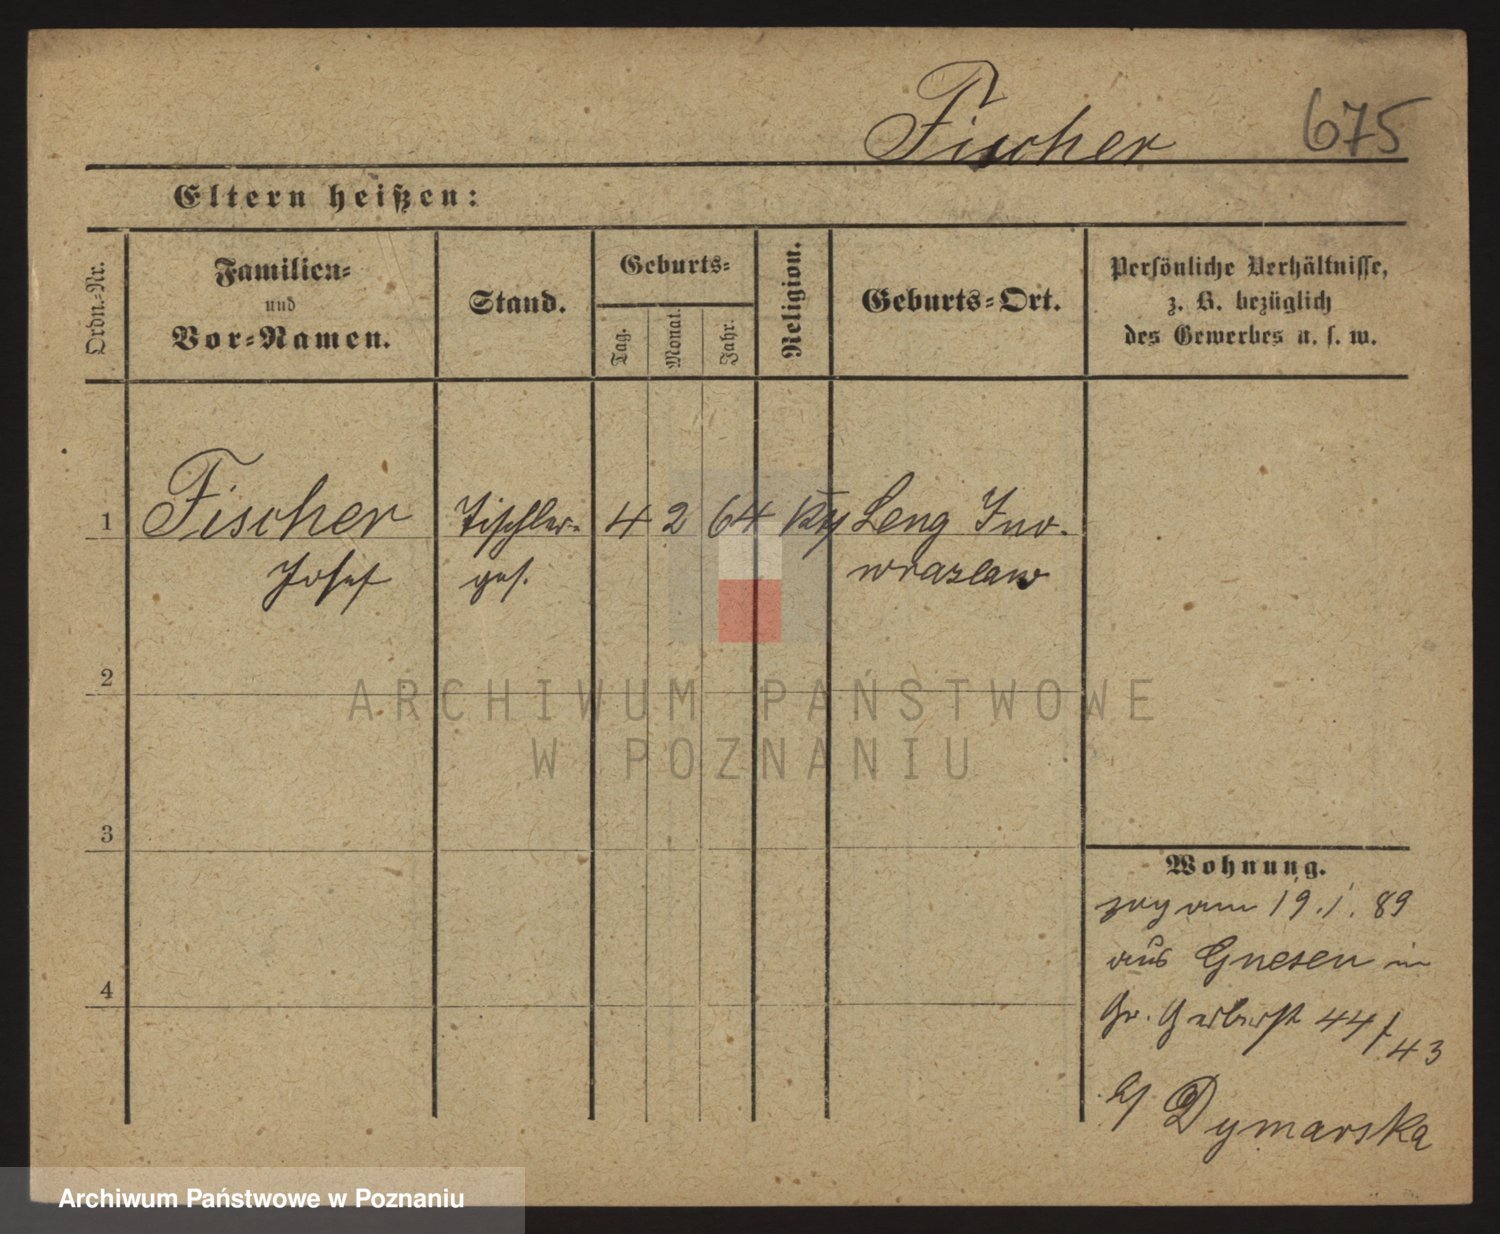 Fischer 675
Eltern heißen:
Ordn.-Nr.
Familien-
und
Vor-Namen.
Stand.
Geburts-
Tag.
Monat.
Jahr.
Religion.
Geburts-Ort.
Persönliche Verhältnisse,
z. B. bezüglich
des Gewerbes u. s. w.
1 Fischer Tischler- 4 2 64 Kth Leng Ino-
Josef ges. wrazlaw
2
ARCHIWUM PAŃSTWOWE
W POZNANIU
3
4
Wohnung.
zog am 19.1.89
aus Gnesen in
Gr. Gerberst 44/43
b/ Dymarska
Archiwum Państwowe w Poznaniu